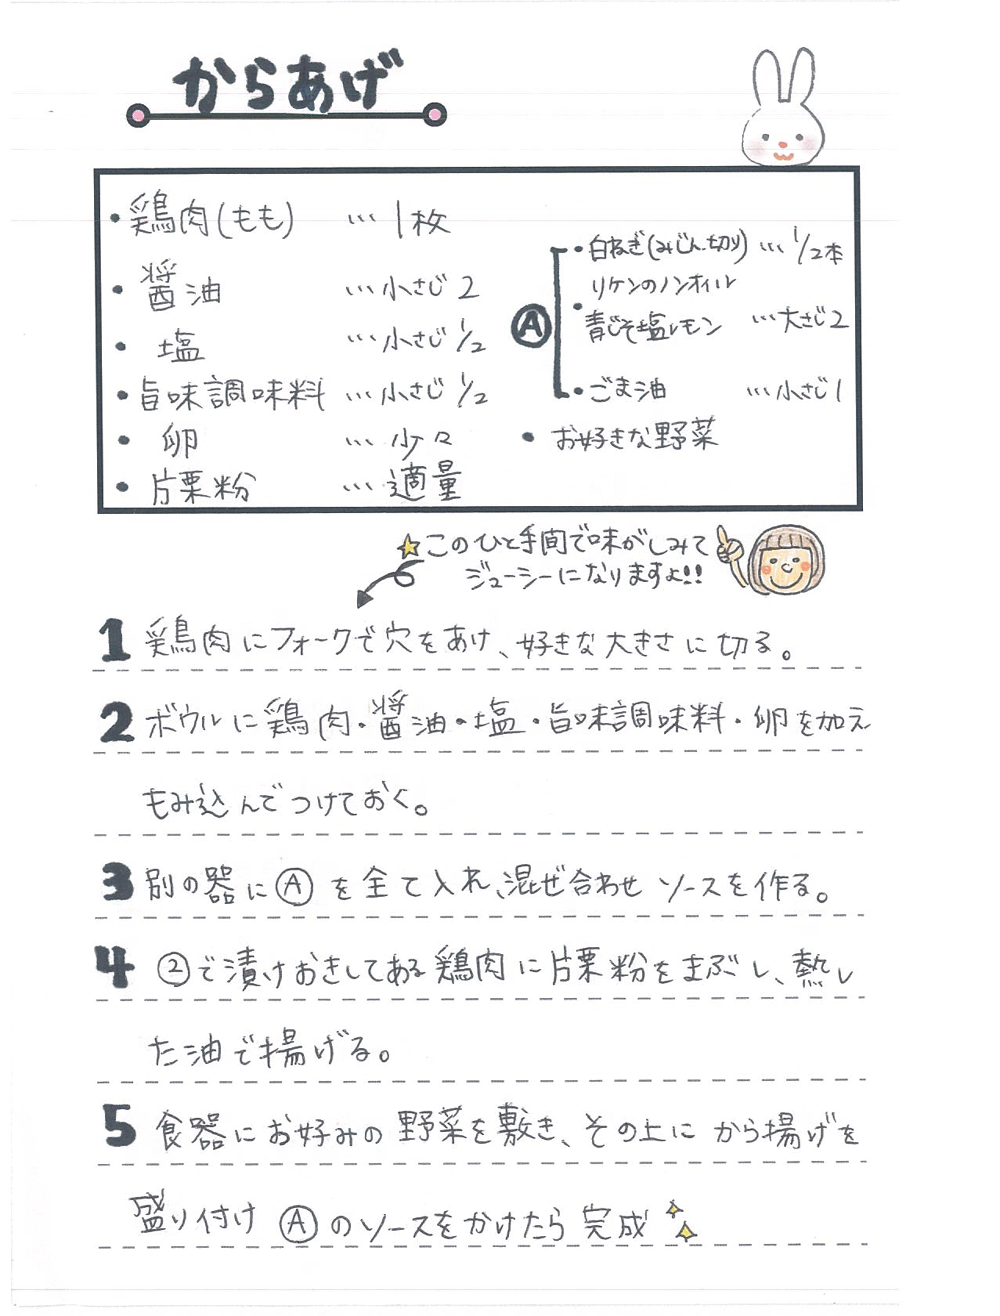 からあげ
・鶏肉(もも) … 1枚
・醤油 … 小さじ 2
・塩 … 小さじ 1/2
・旨味調味料 … 小さじ 1/2
・卵 … 少々
・片栗粉 … 適量
Ⓐ
・白ねぎ(みじん切り) … 1/2本
・リケンのノンオイル
青じそ塩レモン … 大さじ2
・ごま油 … 小さじ1
・お好きな野菜
このひと手間で味がしみて
ジューシーになりますよ!!
1 鶏肉にフォークで穴をあけ、好きな大きさに切る。
2 ボウルに鶏肉・醤油・塩・旨味調味料・卵を加え
もみ込んでつけておく。
3 別の器にⒶを全て入れ、混ぜ合わせソースを作る。
4 ②で漬けおきしてある鶏肉に片栗粉をまぶし、熱し
た油で揚げる。
5 食器にお好みの野菜を敷き、その上にから揚げを
盛り付けⒶのソースをかけたら完成